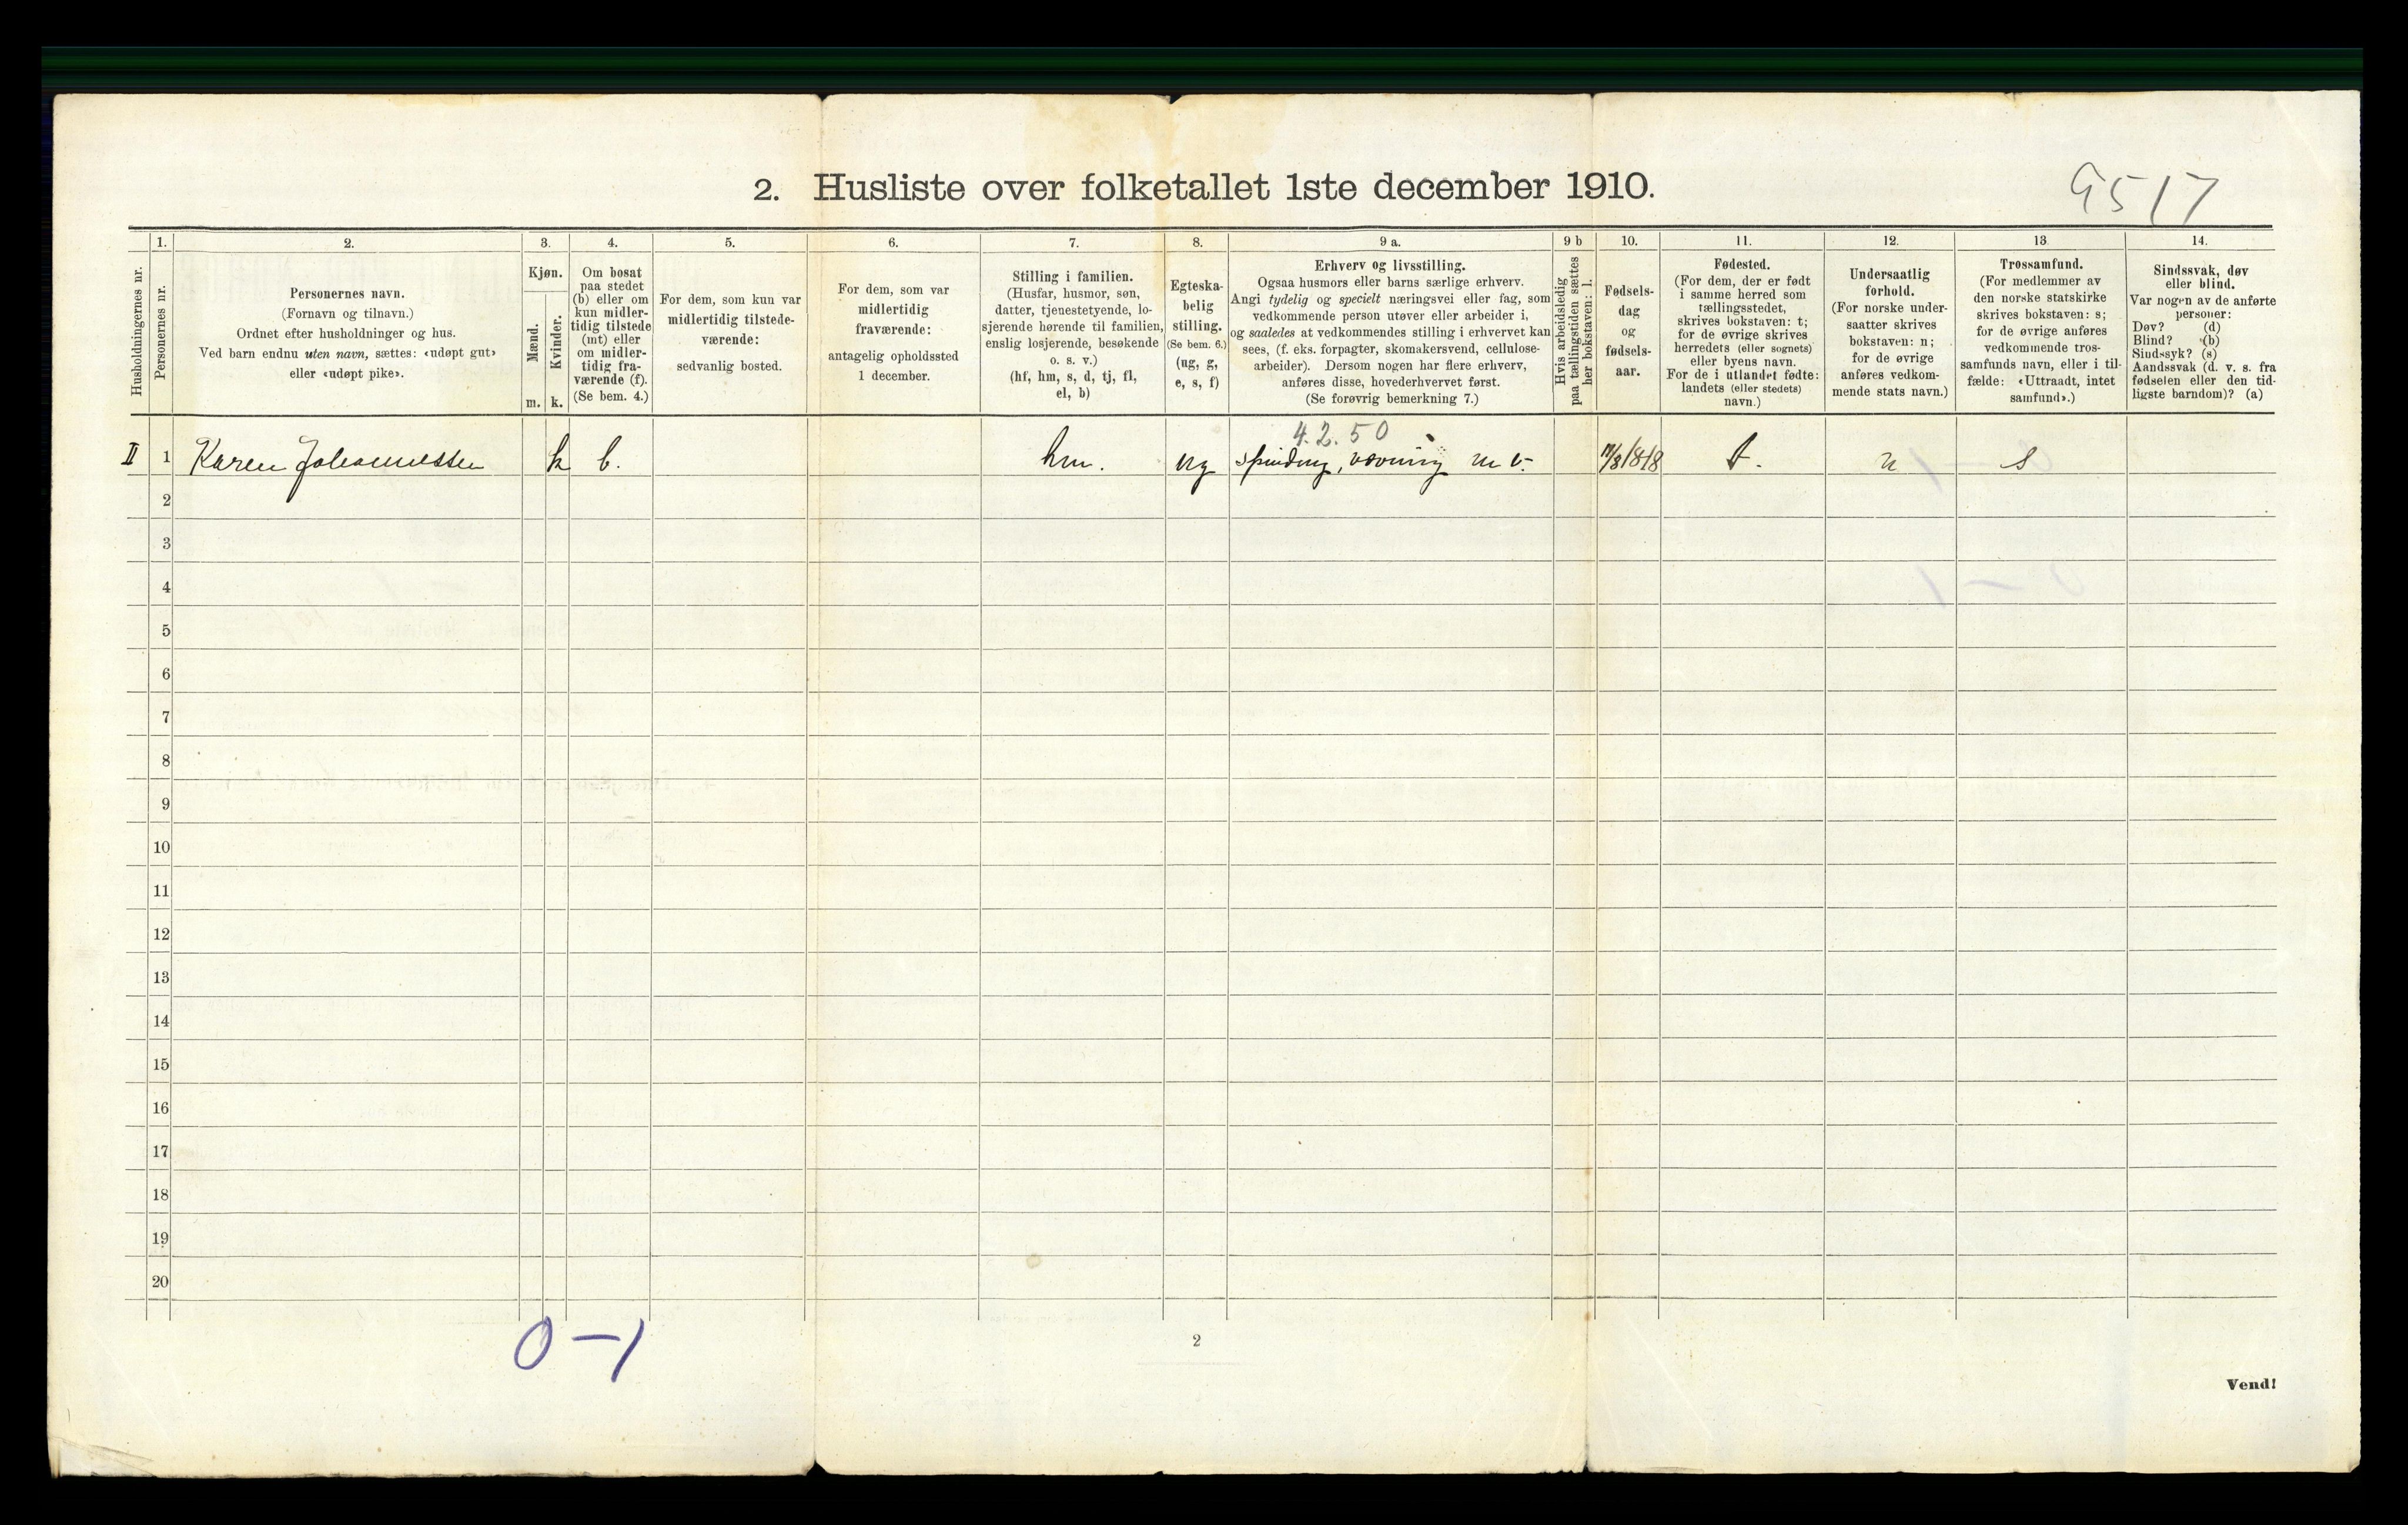 2. Husliste over folketallet 1ste december 1910.
9517
Husholdningernes nr.
1.
Personernes nr.
2.
Personernes navn.
(Fornavn og tilnavn.)
Ordnet efter husholdninger og hus.
Ved barn endnu uten navn, sættes: «udøpt gut»
eller «udøpt pike».
3.
Kjøn.
Mænd.
m.
Kvinder.
k.
4.
Om bosat
paa stedet
(b) eller om
kun midler-
tidig tilstede
(mt) eller
om midler-
tidig fra-
værende (f).
(Se bem. 4.)
5.
For dem, som kun var
midlertidig tilstede-
værende:
sedvanlig bosted.
6.
For dem, som var
midlertidig
fraværende:
antagelig opholdssted
1 december.
7.
Stilling i familien.
(Husfar, husmor, søn,
datter, tjenestetyende, lo-
sjerende hørende til familien,
enslig losjerende, besøkende
o. s. v.)
(hf, hm, s, d, tj, fl,
el, b)
8.
Egteska-
belig
stilling.
(Se bem. 6.)
(ug, g,
e, s, f)
9 a.
Erhverv og livsstilling.
Ogsaa husmors eller barns særlige erhverv.
Angi tydelig og specielt næringsvei eller fag, som
vedkommende person utøver eller arbeider i,
og saaledes at vedkommendes stilling i erhvervet kan
sees, (f. eks. forpagter, skomakersvend, cellulose-
arbeider). Dersom nogen har flere erhverv,
anføres disse, hovederhvervet først.
(Se forøvrig bemerkning 7.)
9 b
Hvis arbeidsledig
paa tællingstiden sættes
her bokstaven: l.
10.
Fødsels-
dag
og
fødsels-
aar.
11.
Fødested.
(For dem, der er født
i samme herred som
tællingsstedet,
skrives bokstaven: t;
for de øvrige skrives
herredets (eller sognets)
eller byens navn.
For de i utlandet fødte:
landets (eller stedets)
navn.)
12.
Undersaatlig
forhold.
(For norske under-
saatter skrives
bokstaven: n;
for de øvrige
anføres vedkom-
mende stats navn.)
13
Trossamfund.
(For medlemmer av
den norske statskirke
skrives bokstaven: s;
for de øvrige anføres
vedkommende tros-
samfunds navn, eller i til-
fælde: «Uttraadt, intet
samfund».)
14.
Sindssvak, døv
eller blind.
Var nogen av de anførte
personer:
Døv? (d)
Blind? (b)
Sindssyk? (s)
Aandssvak (d. v. s. fra
fødselen eller den tid-
ligste barndom)? (a)
4.2.50
II 1 Karen Johannessen k b. hm. ug spinding, vævning m v. t. n s
2
3
4
5
6
7
8
9
10
11
12
13
14
15
16
17
18
19
20
0-1
2
Vend!